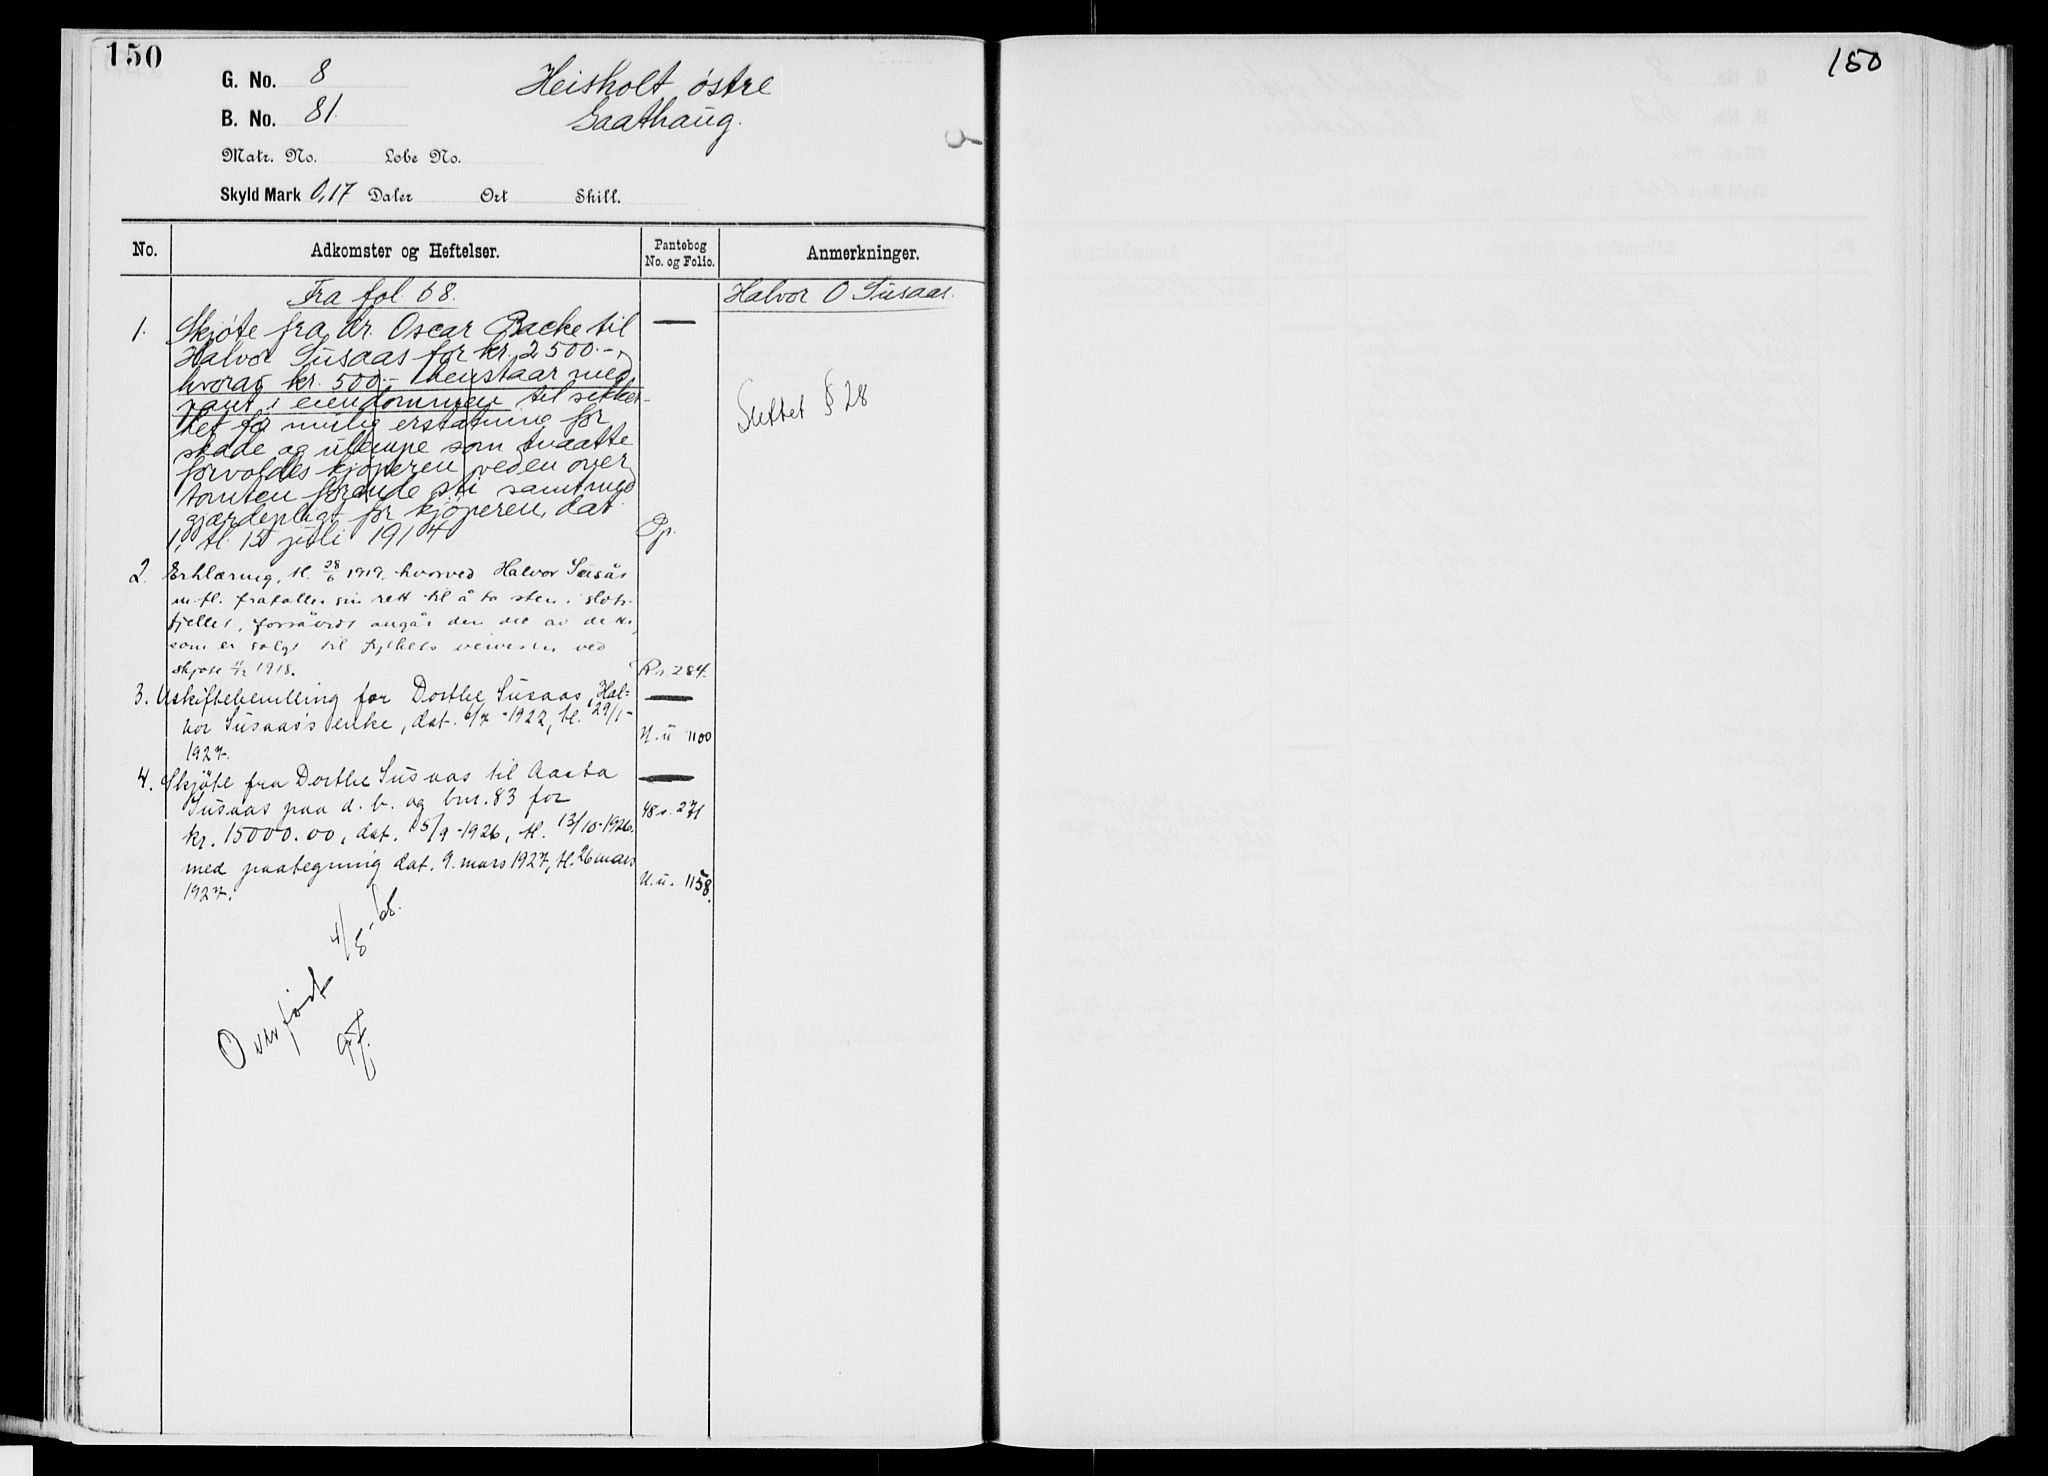 150
G. No. 8
Heisholt østre
B. No. 81.
Gaathaug.
Matr. No. Løbe No.
Skyld Mark 0,17 Daler Ort Skill.
No. Adkomster og Heftelser. Pantebog No. og Folio. Anmerkninger.
Fra fol. 68.
Halvor O Susaas.
1. Skjøte fra dr. Oscar Backe til
Halvor Susaas for kr. 2500.-,
hvorav kr. 500.- henstaar med
pant i eiendommen til sikker-
het for mulig erstatning for
skade og ulempe som maatte
forvoldes kjøperen ved en over
tomten førende sti samt med
gjærdepligt for kjøperen, dat.
1, tl. 15 juli 1914
Pp.
Slettet § 28
2. Erklæring, tl. 28/6 1919, hvorved Halvor Susås
m. fl. frafaller sin rett til å ta sten i slots-
fjellet, forsåvidt angår den del av dette
som er solgt til fylkets veivesen ved
skjøte 1918.
R. 284.
3. Uskiftebevilling for Dorthe Susaas, Hal-
vor Susaas's enke, dat. 6/7 -1922, tl. 29/1-
1927.
N. u 1100
4. Skjøte fra Dorthe Susaas til Aasta
Susaas paa d. b. og bnr. 83 for
kr. 15000.00, dat. 15/9-1926, tl. 13/10-1926.
48 s. 271
med paategning dat. 9. mars 1927, tl. 26 mars
1927.
N. u. 1158.
Overført 4/5-68.
150